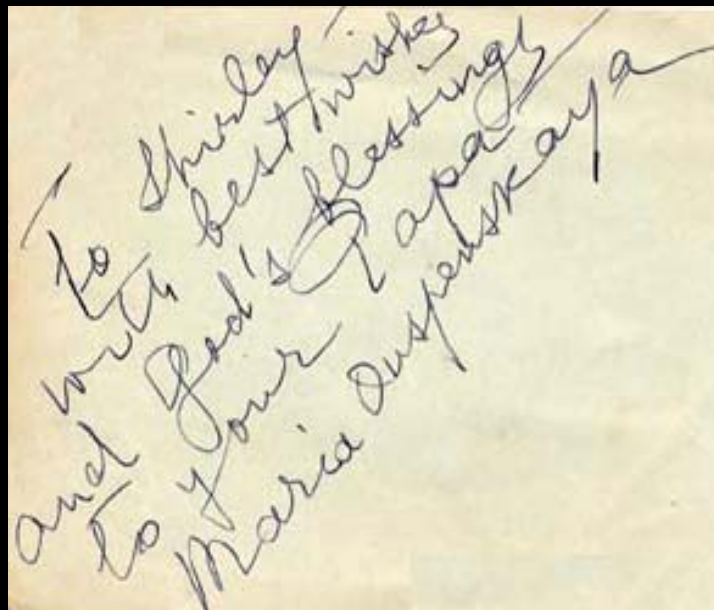 To Shirley
with best wishes
and God's blessings
to your Papa
Maria Ouspenskaya